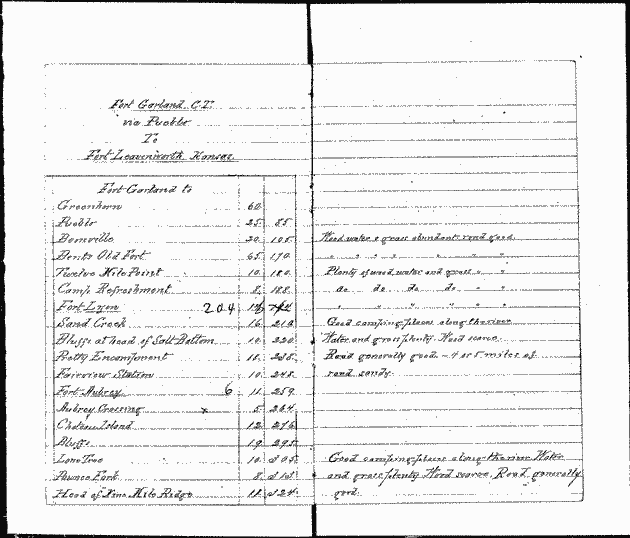 Fort Garland, C.T.
via Pueblo
To
Fort Leavenworth Kansas.
Fort Garland to
Greenhorn 60
Pueblo 25 85
Booneville 20 105 Wood, water & grass abundant road good.
Bent's Old Fort 65 170 " " " " " "
Twelve Mile Point 10 180 Plenty of wood, water and grass " "
Camp Refreshment 8 188 do do do do " "
Fort Lyon 204 " " " " " "
Sand Creek 16 210 Good camping places along the river
Bluffs at head of Salt Bottom 10 220 Water and grass plenty. Wood scarce.
Pretty Encampment 18 238 Road generally good - 4 or 5 miles of
Fairview Station 10 248 road sandy.
Fort Aubrey 6 11 259
Aubrey Crossing x 5 264
Choteau Island 12 276
Bluffs 19 295
Lone Tree 10 305 Good camping places along the river Water
Pawnee Fort 8 313 and grass plenty Wood scarce. Road generally
Head of Nine Mile Ridge 11 324 good.